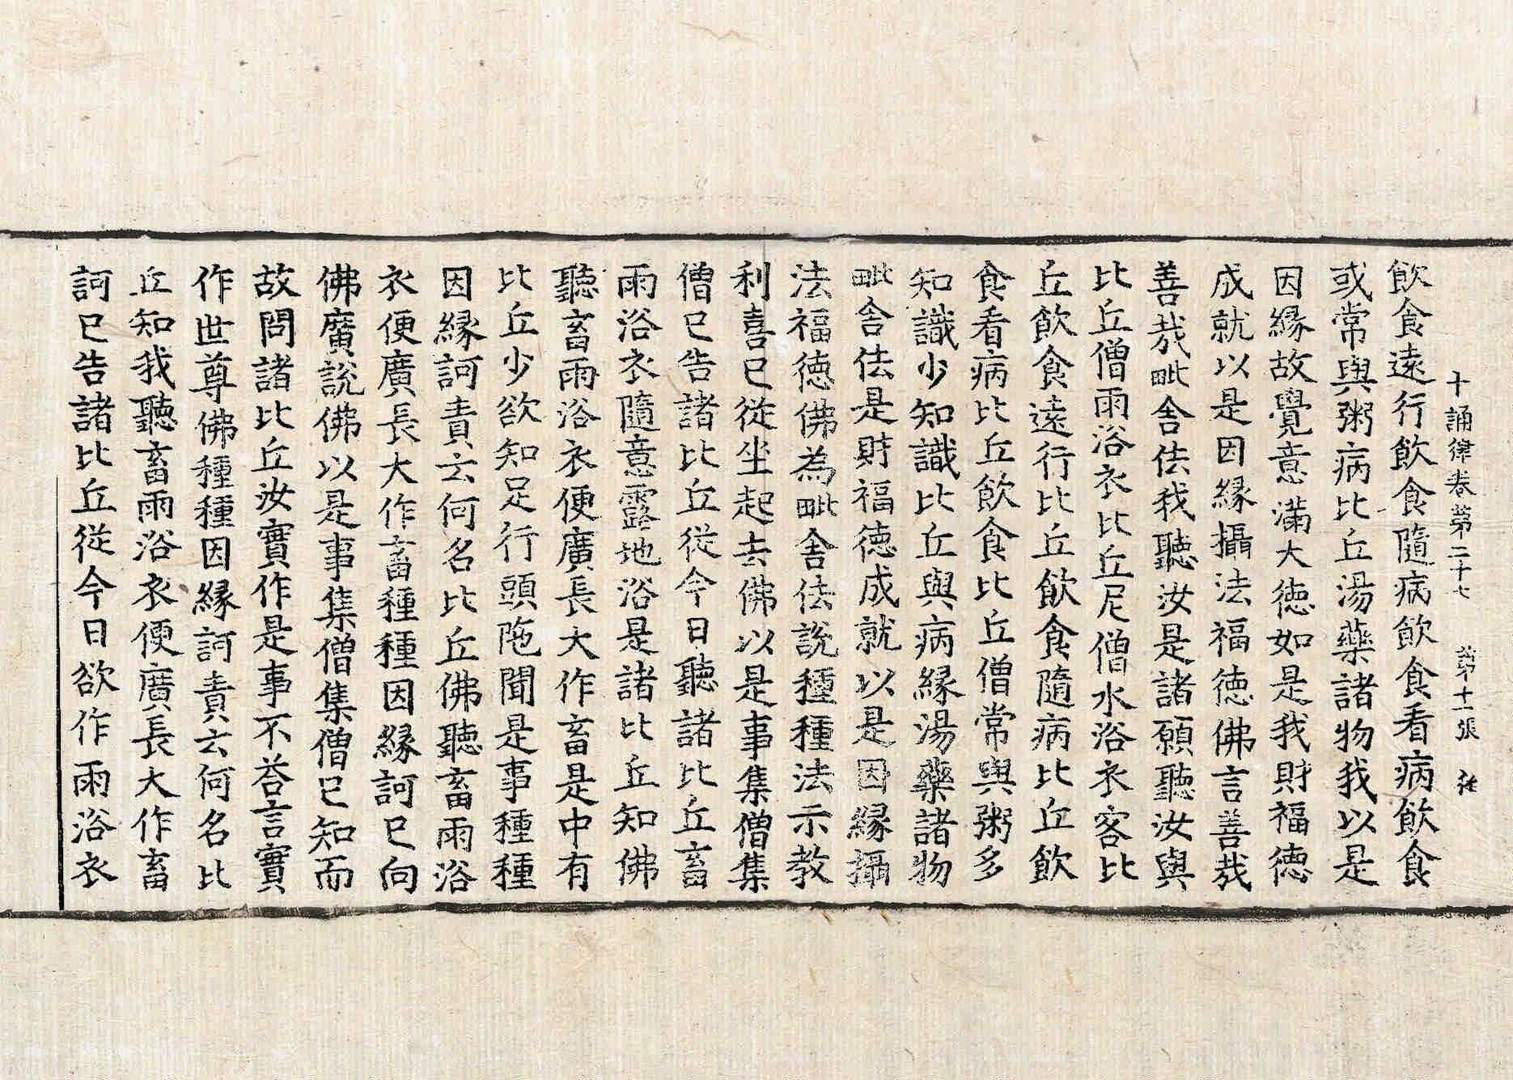 十誦律卷第二十七　第十一張
飲食遠行飲食隨病飲食看病飲食
或常與粥病比丘湯藥諸物我以是
因緣故覺意滿大徳如是我財福徳
成就以是因緣攝法福徳佛言善哉
善哉毗舍佉我聽汝是諸願聽汝與
比丘僧雨浴衣比丘尼僧水浴衣客比
丘飲食遠行比丘飲食隨病比丘飲
食看病比丘飲食比丘僧常與粥多
知識少知識比丘與病緣湯藥諸物
毗舍佉是財福徳成就以是因緣攝
法福徳佛為毗舍佉說種種法示教
利喜已從坐起去佛以是事集僧集
僧已告諸比丘從今日聽諸比丘畜
雨浴衣隨意露地浴是諸比丘知佛
聽畜雨浴衣便廣長大作畜是中有
比丘少欲知足行頭陁聞是事種種
因緣訶責云何名比丘佛聽畜雨浴
衣便廣長大作畜種種因緣訶已向
佛廣說佛以是事集僧集僧已知而
故問諸比丘汝實作是事不荅言實
作世尊佛種種因緣訶責云何名比
丘知我聽畜雨浴衣便廣長大作畜
訶已告諸比丘從今日欲作雨浴衣